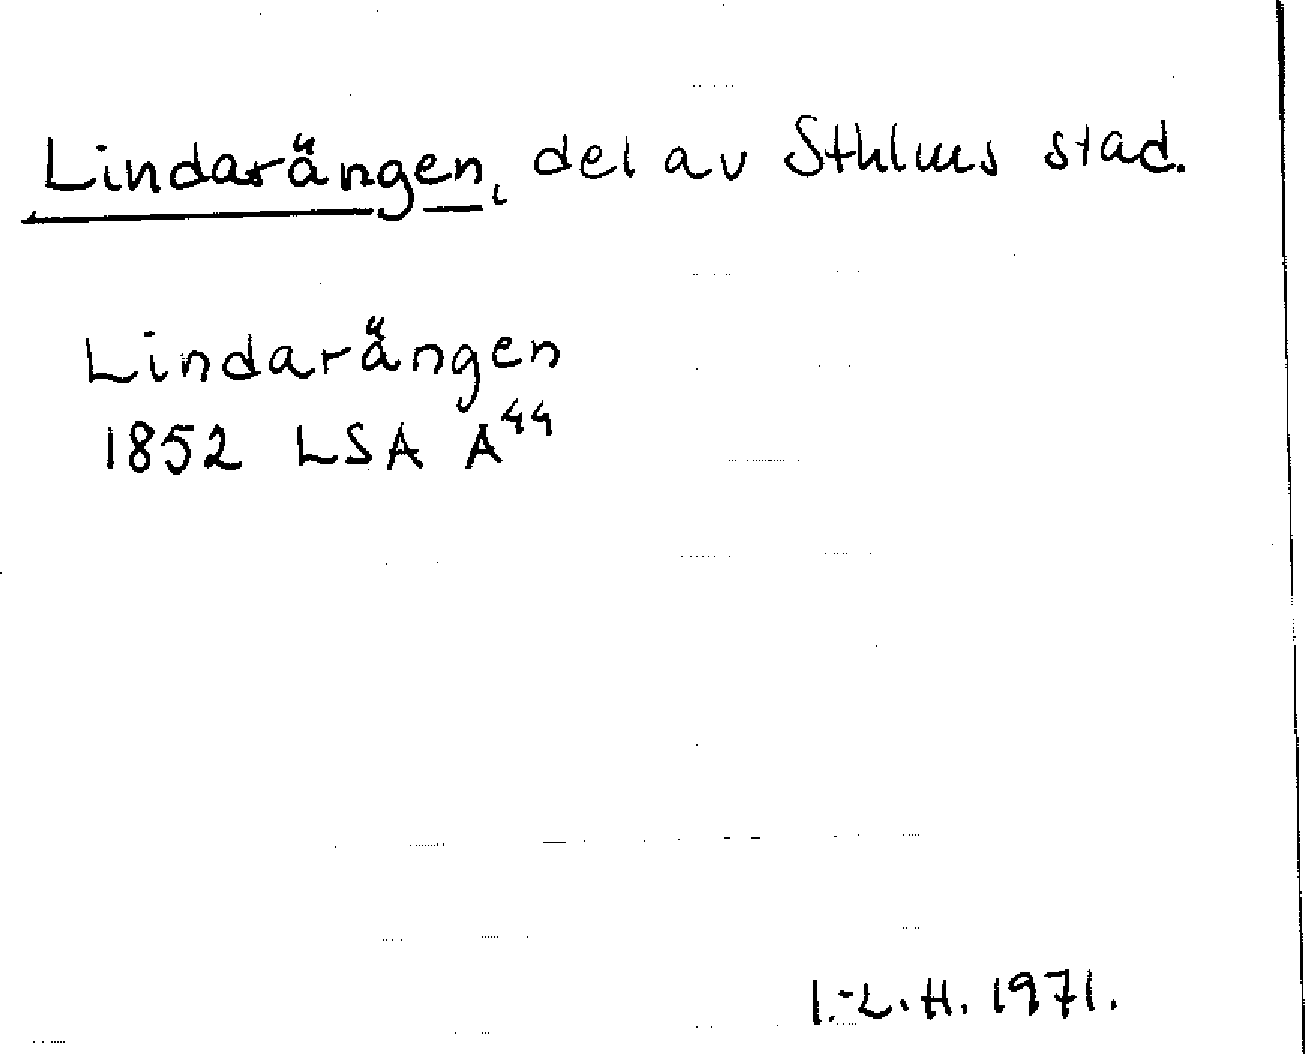 Lindarängen, del av Sthlms stad.
Lindarängen
1852 LSA A⁴⁴
I.-L.H. 1971.